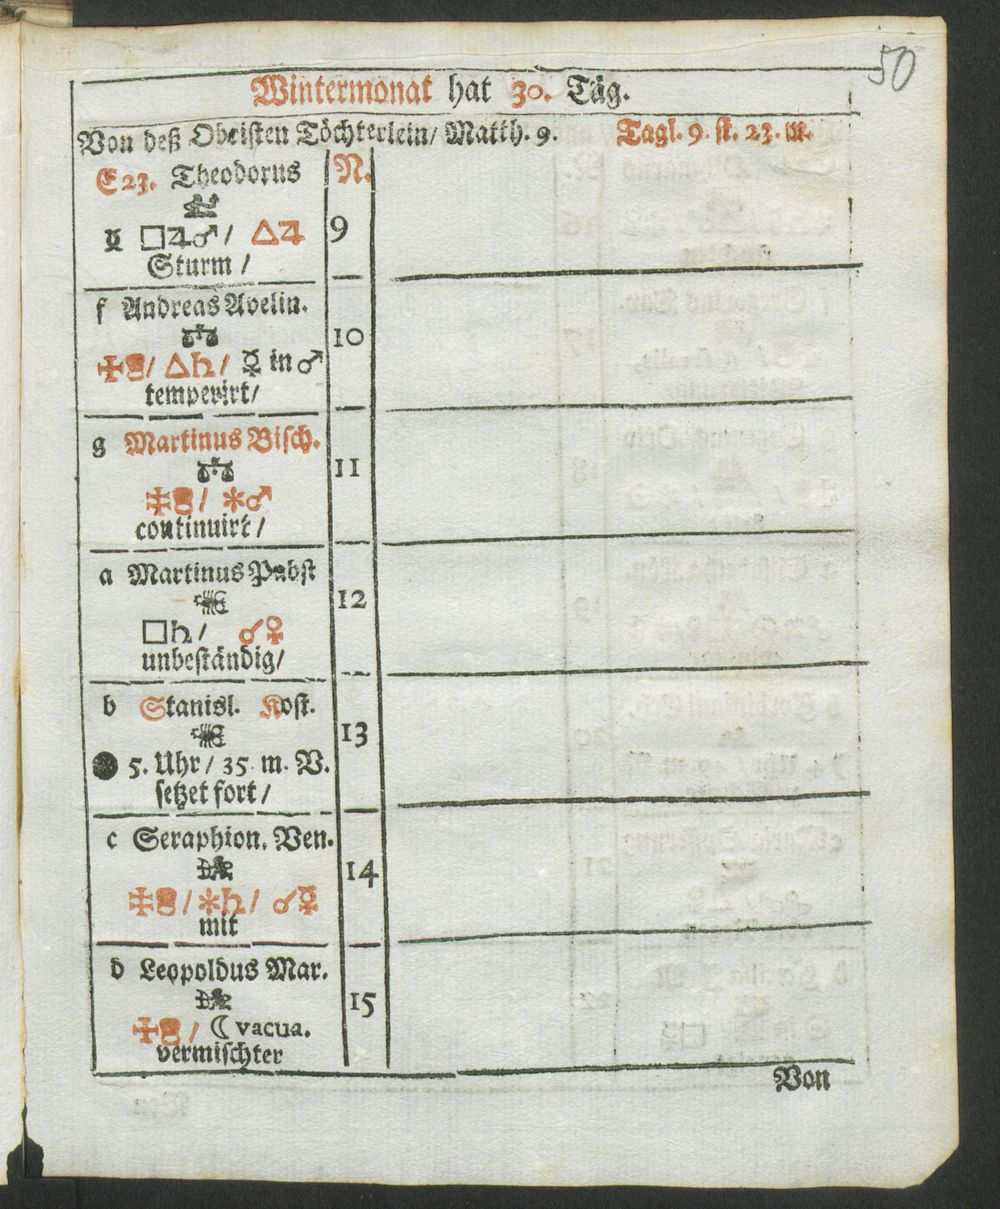 50
Wintermonat hat 30. Täg.
Von deß Obristen Töchterlein/ Matth. 9. Tagl. 9. st. 23. m.
E 23. Theodorus N.
☿ □♃♂/ △♃ 9
Sturm /
f Andreas Avelin.
10
/ △♄/ ☿ in ♂
temperirt/
g Martinus Bisch.
11
/ ⚹♂
continuirt /
a Martinus Pabst
12
□♄/ ☌♀
unbeständig/
b Stanisl. Kost.
13
● 5. Uhr/ 35 m. V.
setzet fort /
c Seraphion. Ven.
14
/ ⚹♄/ ☌☿
mit
d Leopoldus Mar.
15
/ ☾ vacua.
vermischter
Von